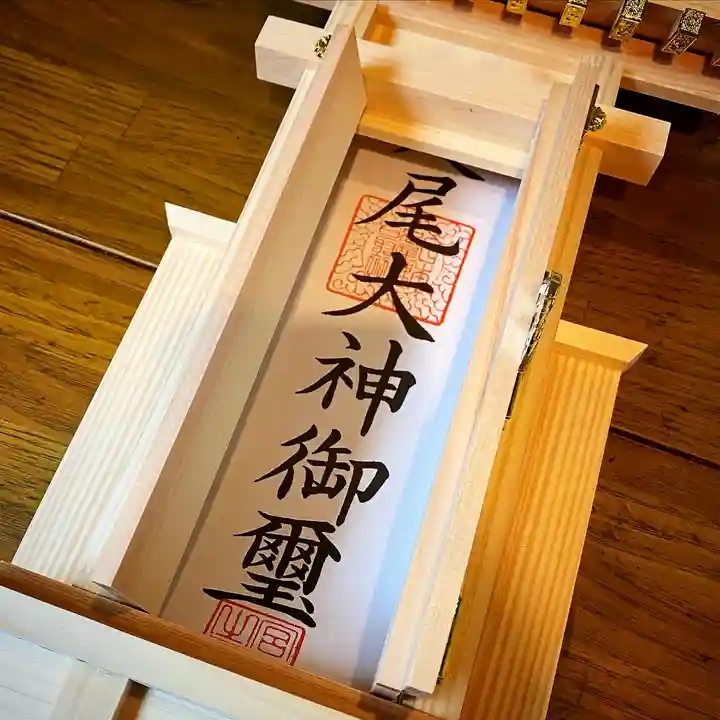 尾大神御璽